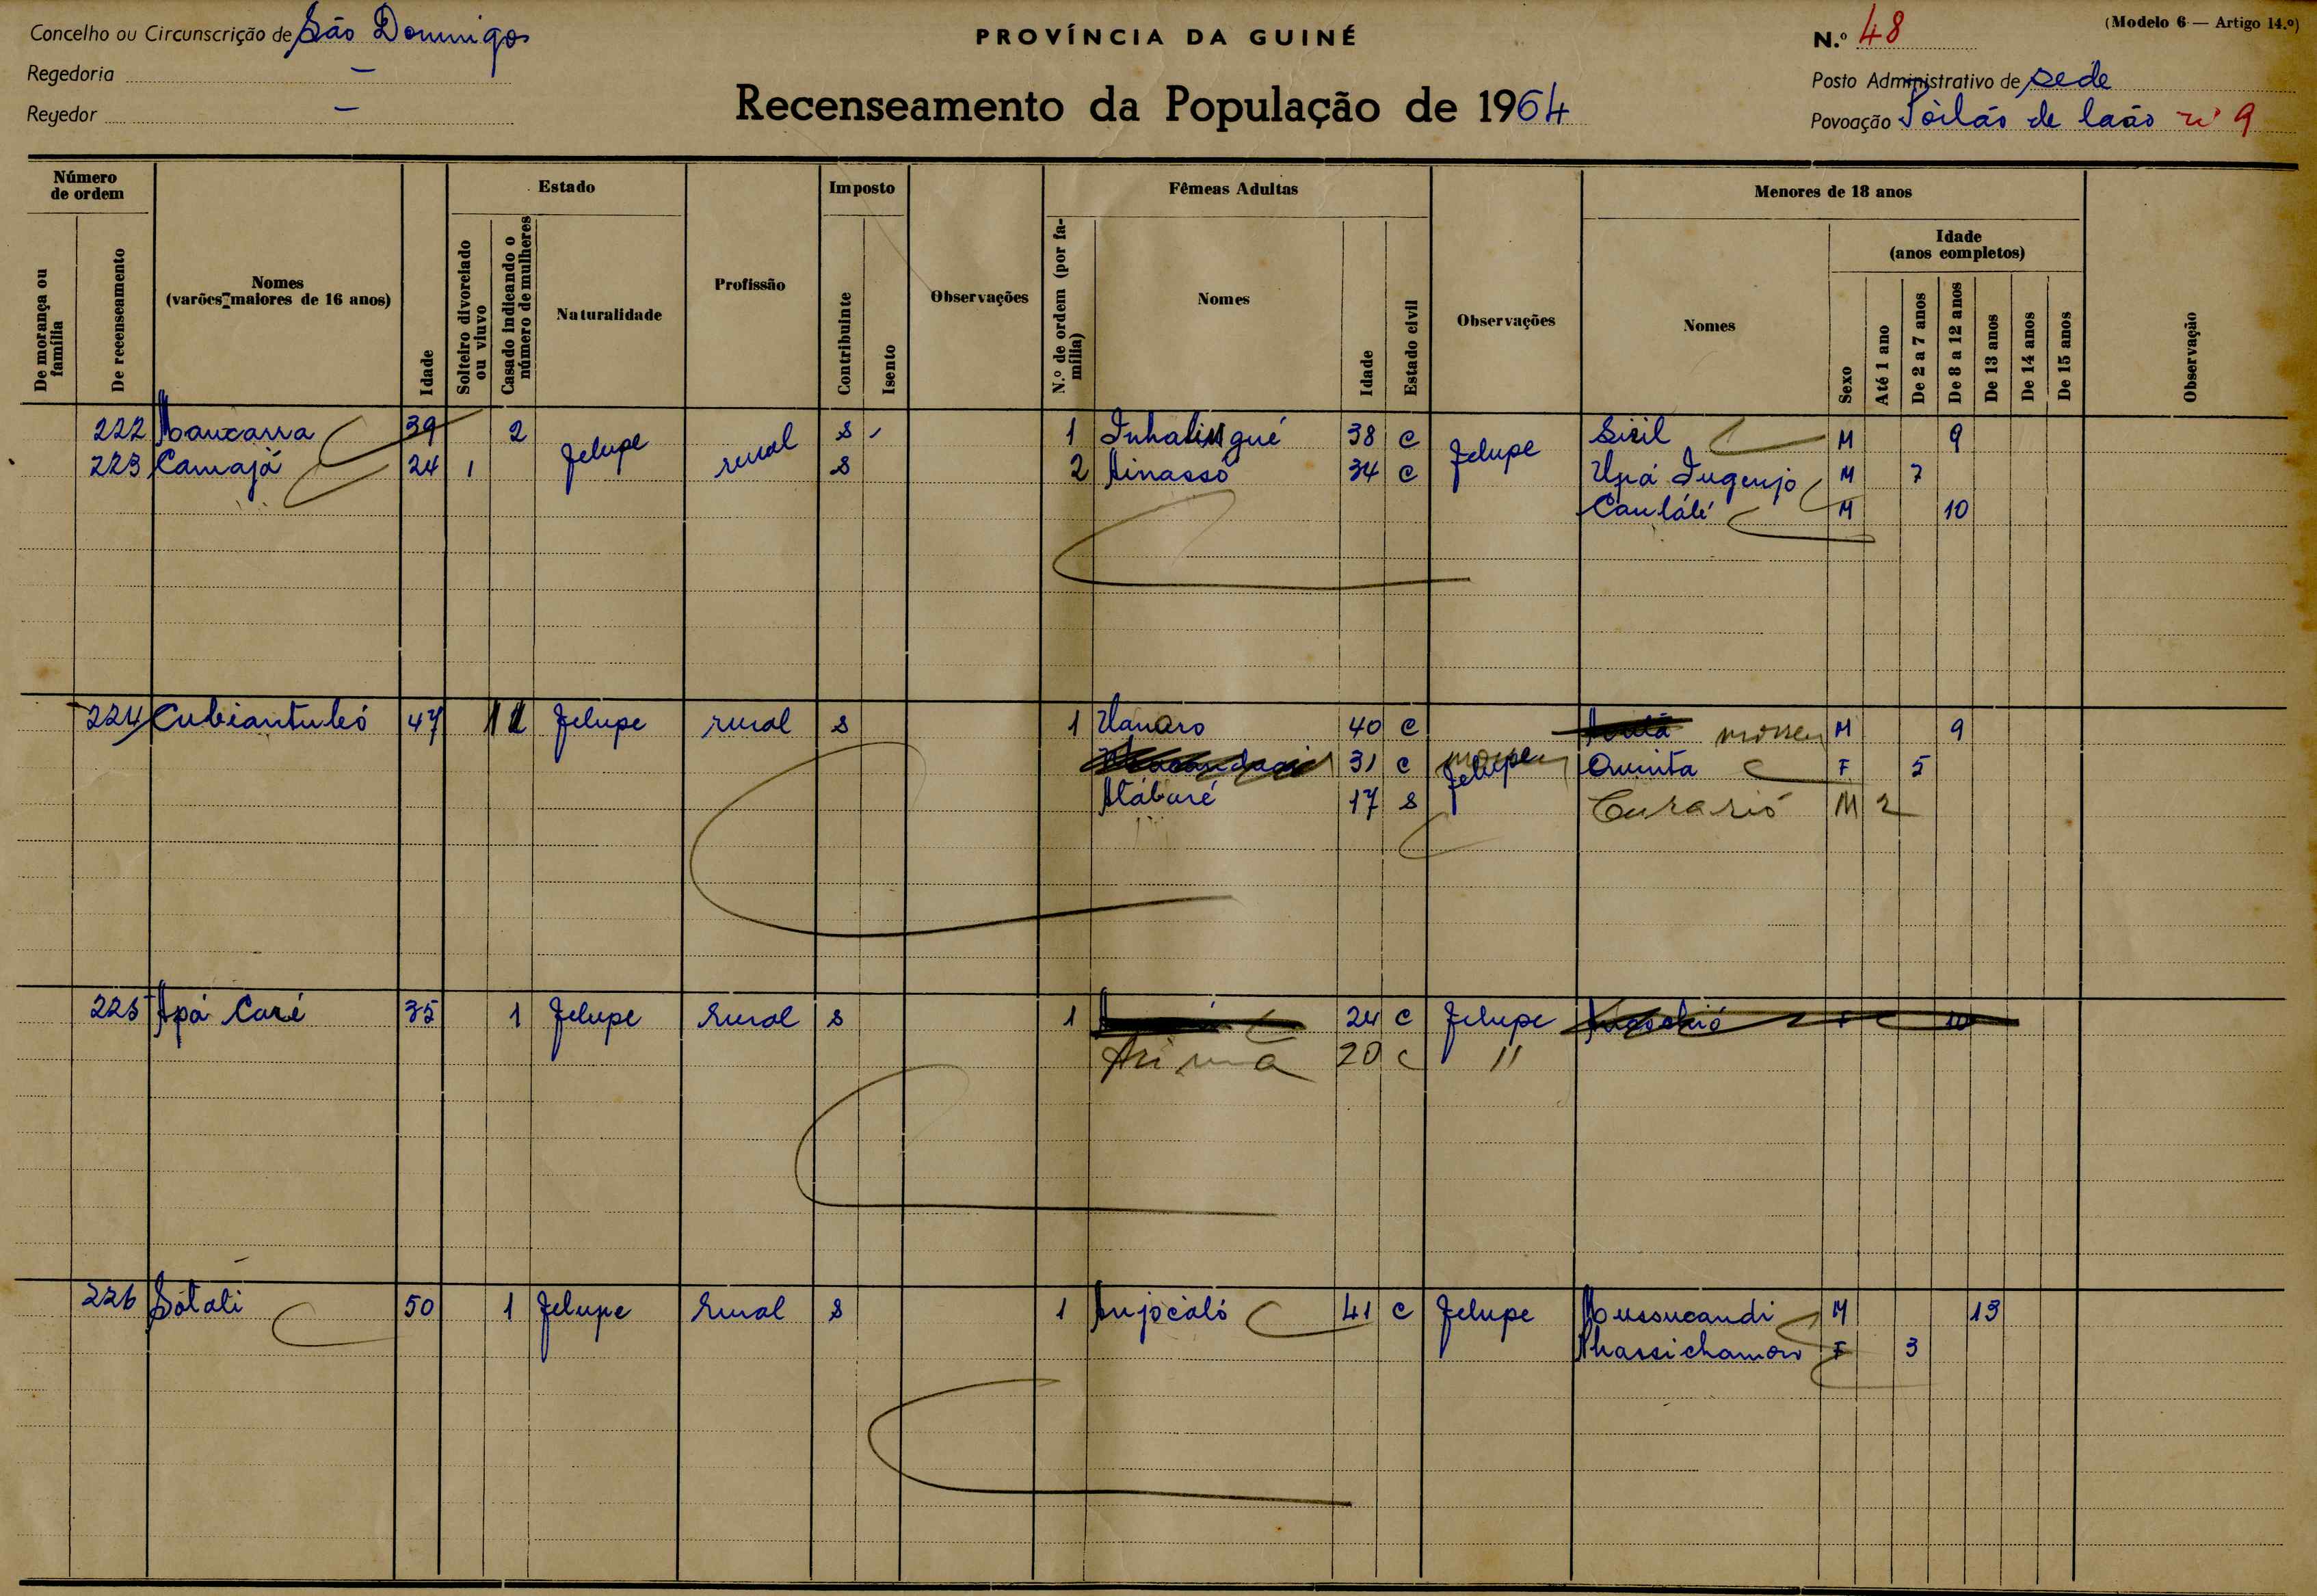 Concelho ou Circunscrição de São Domingos
Regedoria —
Regedor —
PROVÍNCIA DA GUINÉ
Recenseamento da População de 1964
(Modelo 6 — Artigo 14.º)
N.º 48
Posto Administrativo de sede
Povoação de nº 9
Número de ordem
De morança ou família
De recenseamento
Nomes (varões maiores de 16 anos)
Idade
Estado
Solteiro divorciado ou viuvo
Casado indicando o número de mulheres
Naturalidade
Profissão
Imposto
Contribuinte
Isento
Observações
Fêmeas Adultas
N.º de ordem (por família)
Nomes
Idade
Estado civil
Observações
Menores de 18 anos
Nomes
Idade (anos completos)
Sexo
Até 1 ano
De 2 a 7 anos
De 8 a 12 anos
De 13 anos
De 14 anos
De 15 anos
Observação
222 39 2 Felupe rural s 1 Inhalingué 38 c Felupe Sicil M 9
223 Camajá 24 1 s 2 Ainassó 34 c Upá M 7
M 10
224 Cubiantubó 47 Felupe rural s 1 40 c morreu M 9
31 c morreu Felupe Quinta F 5
Atáburé 17 s M 2
225 Apá Caré 35 1 Felupe Rural s 1 24 c Felupe
20 c 11
226 Sótali 50 1 Felupe Rural s 1 Anjócaló 41 c Felupe Mussucandi M 13
F 3